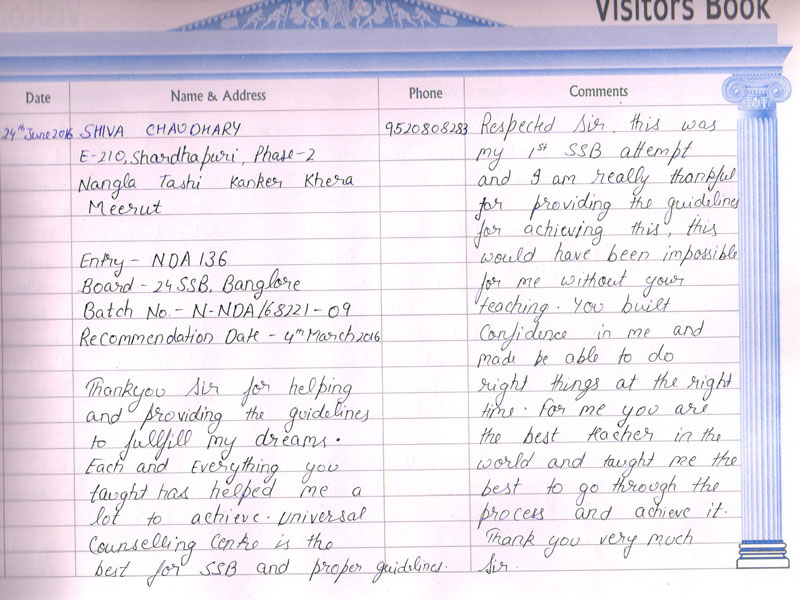 Visitors Book
Date Name & Address Phone Comments
24th June 2016 SHIVA CHAUDHARY 9520808283
E-210, Shardhapuri, Phase-2
Nangla Tashi Kanker Khera
Meerut
Entry - NDA 136
Board - 24 SSB, Banglore
Batch No. - N-NDA/68221-09
Recommendation Date - 4th March 2016
Thankyou Sir for helping
and providing the guidelines
to fullfill my dreams.
Each and Everything you
taught has helped me a
lot to achieve. Universal
Counselling Centre is the
best for SSB and proper guidelines.
Respected Sir, this was
my 1st SSB attempt
and I am really thankful
for providing the guidelines
for achieving this, this
would have been impossible
for me without your
teaching. You built
Confidence in me and
made be able to do
right things at the right
time. For me you are
the best teacher in the
world and taught me the
best to go through the
process and achieve it.
Thank you very much
Sir.